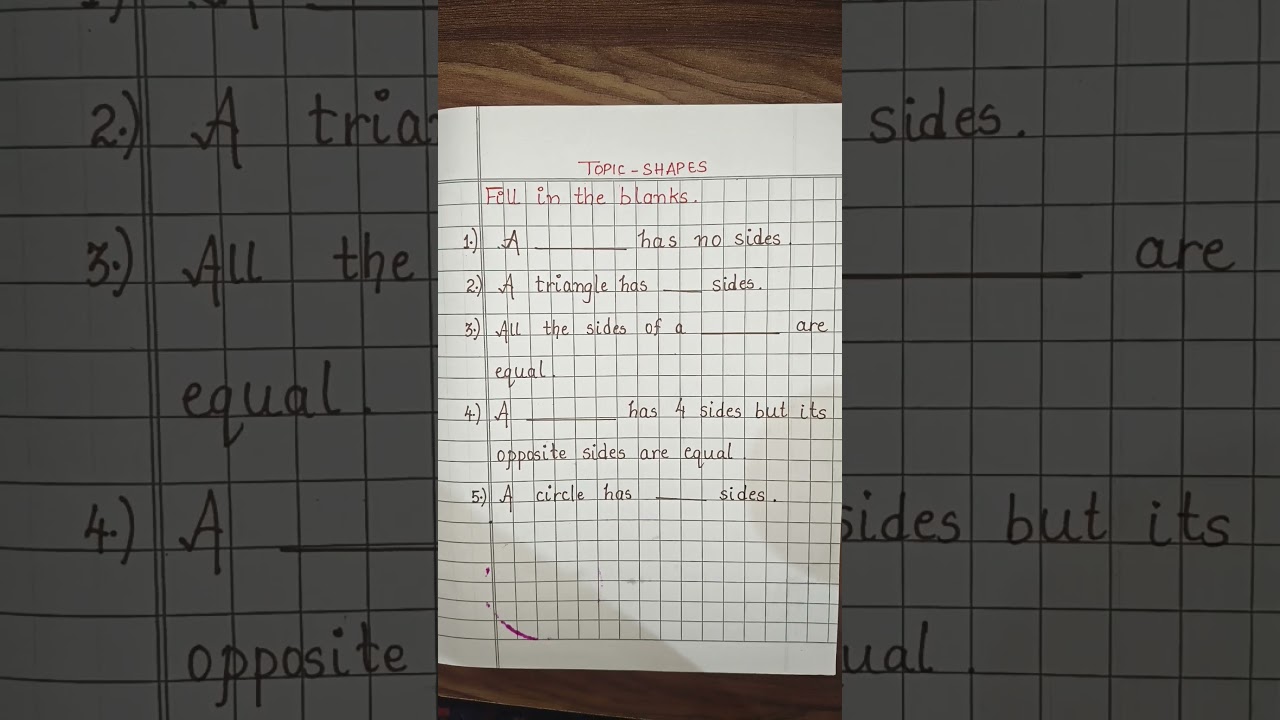 TOPIC - SHAPES
Fill in the blanks.
1.) A ________ has no sides.
2.) A triangle has ____ sides.
3.) All the sides of a _______ are
equal.
4.) A ________ has 4 sides but its
opposite sides are equal.
5.) A circle has ____ sides.